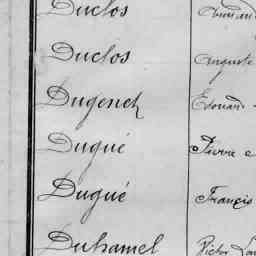 Duclos
Duclos Auguste
Dugench Edouard
Dugué Pierre
Dugué François
Duhamel Victor